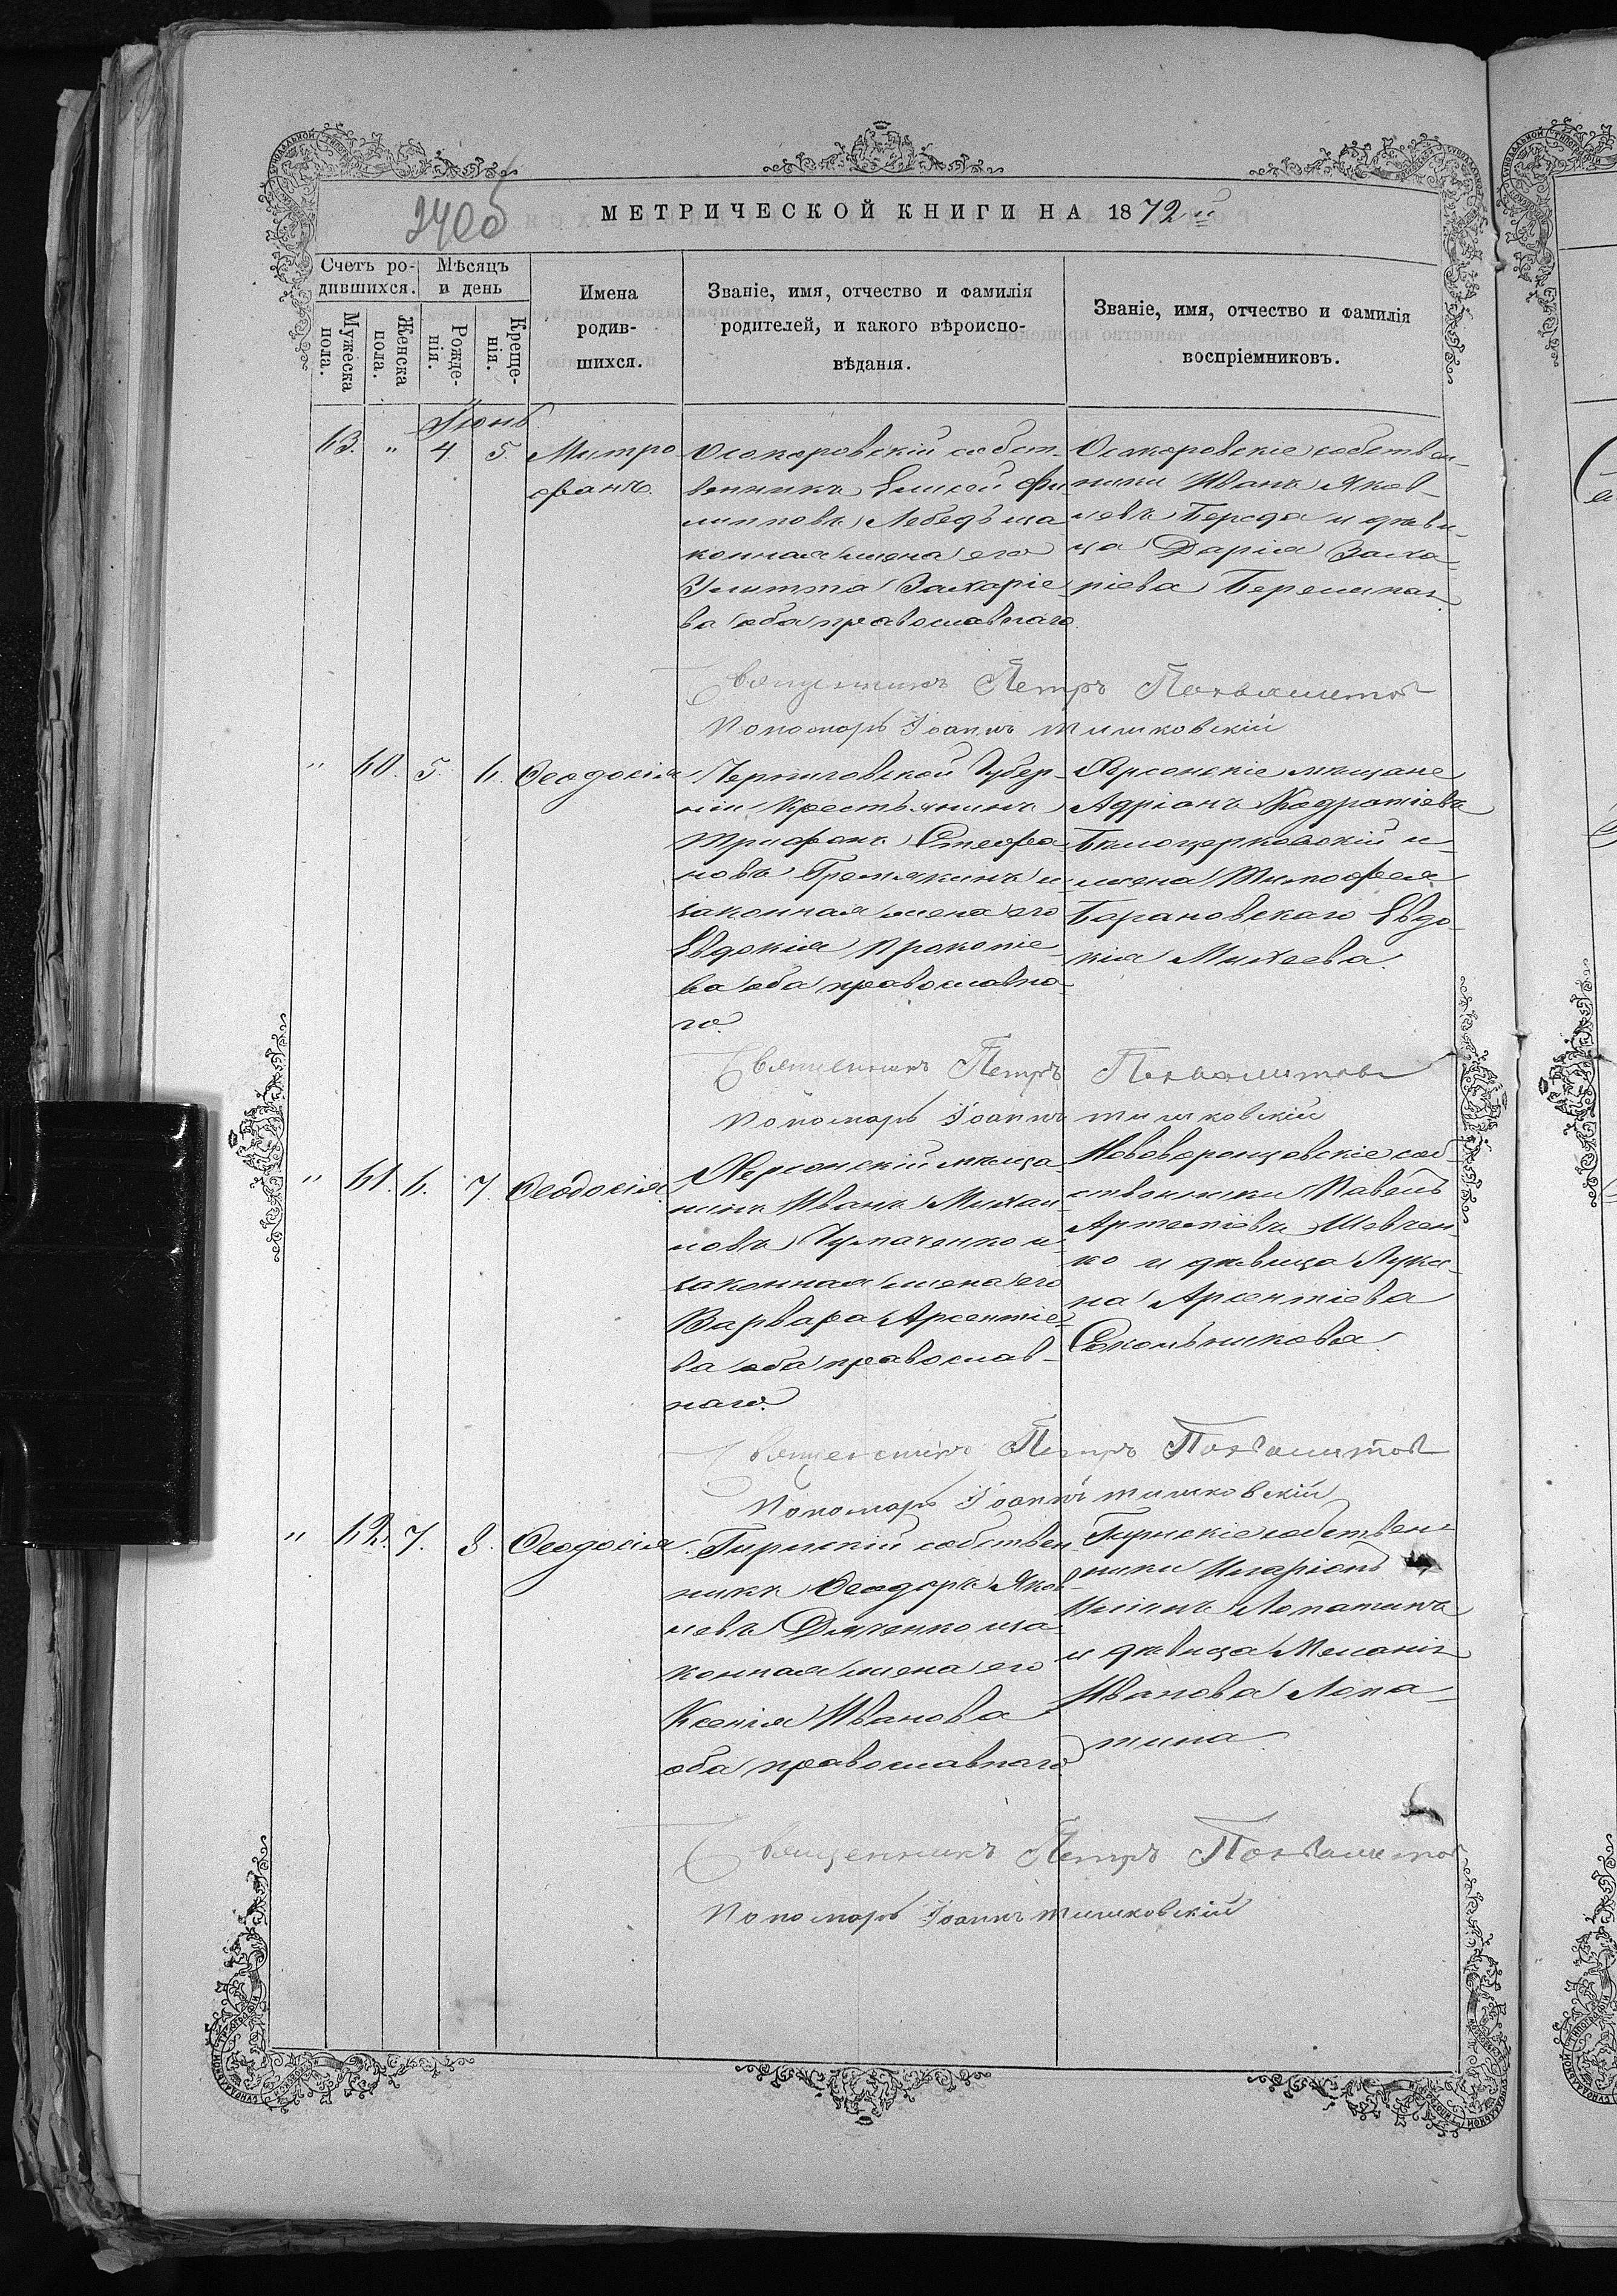 240об
МЕТРИЧЕСКОЙ КНИГИ НА 1872й
Счетъ ро-
дившихся.
Мѣсяцъ
и день
Мужеска
пола.
Женска
пола.
Рожде-
нія.
Креще-
нія.
Имена
родив-
шихся.
Званіе, имя, отчество и фамилія
родителей, и какого вѣроиспо-
вѣданія.
Званіе, имя, отчество и фамилія
воспріемниковъ.
Іюнь
63. " 4. 5.
Митро
фанъ.
Осокоровскій собст-
венникъ Елисей Фи
липповъ Лебедь и за
конная жена его
Улитта Захаріе
ва оба православнаго
Осокоровскіе собствен-
ники Иванъ Яков-
левъ Береда и дѣви
ца Дарія Заха
ріева
Священникъ Петръ
Пономарь Іоаннъ Тишковскій
" 60. 5. 6.
Ѳеодосія
Черниговской Губер-
ніи Крестьянинъ
Трифонъ Стефа
новъ Гремякинъ и
законная жена его
Евдокія Прокопіе
ва оба православна-
го.
Херсонскіе мѣщане
Адріанъ Кодратіевъ
Бѣлоцерковскій и
жена Тимофея
Барановскаго Евдо
кія Михеева.
Священникъ Петръ
Пономарь Іоаннъ Тишковскій
" 61. 6. 7.
Ѳеодосія.
Херсонскій мѣща
нинъ Иванъ Михаи
ловъ Чумаченко и
законная жена его
Варвара Арсентіе
ва оба православ-
наго.
Нововоронцовскіе соб
ственники Павелъ
Артеміевъ Шевчен
ко и дѣвица Луке-
на Арсентіева
Сокольникова.
Священникъ Петръ
Пономарь Іоаннъ Тишковскій
" 62. 7. 8.
Ѳеодосія.
Гирлскій собствен
никъ Ѳеодоръ Яков
левъ Дяченко и за
конная жена его
Ксенія Иванова
оба православнаго
Гирлскіе собствен
ники Иларіонъ
Ильинъ Лопатинъ
и дѣвица Меланія
Иванова Лопа-
тина.
Священникъ Петръ
Пономарь Іоаннъ Тишковскій